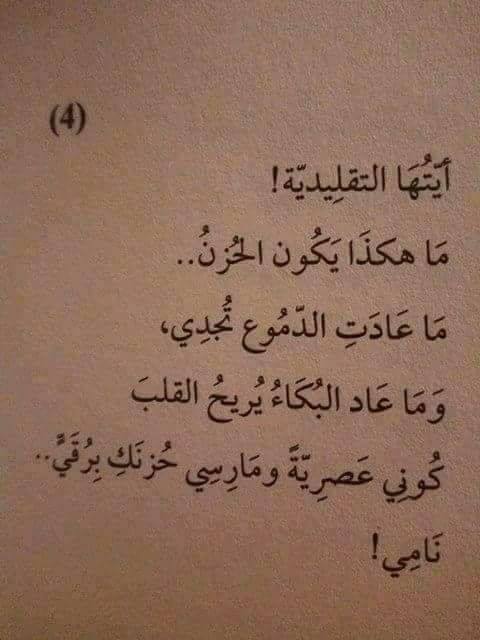 (4)
أيّتُهَا التقلِيديّة!
مَا هكذَا يَكُون الحُزنُ..
مَا عَادَتِ الدّمُوع تُجدِي،
وَمَا عَاد البُكَاءُ يُريحُ القلبَ
كُونِي عَصرِيّةً ومَارِسِي حُزنَكِ بِرُقَيٍّ..
نَامِي!